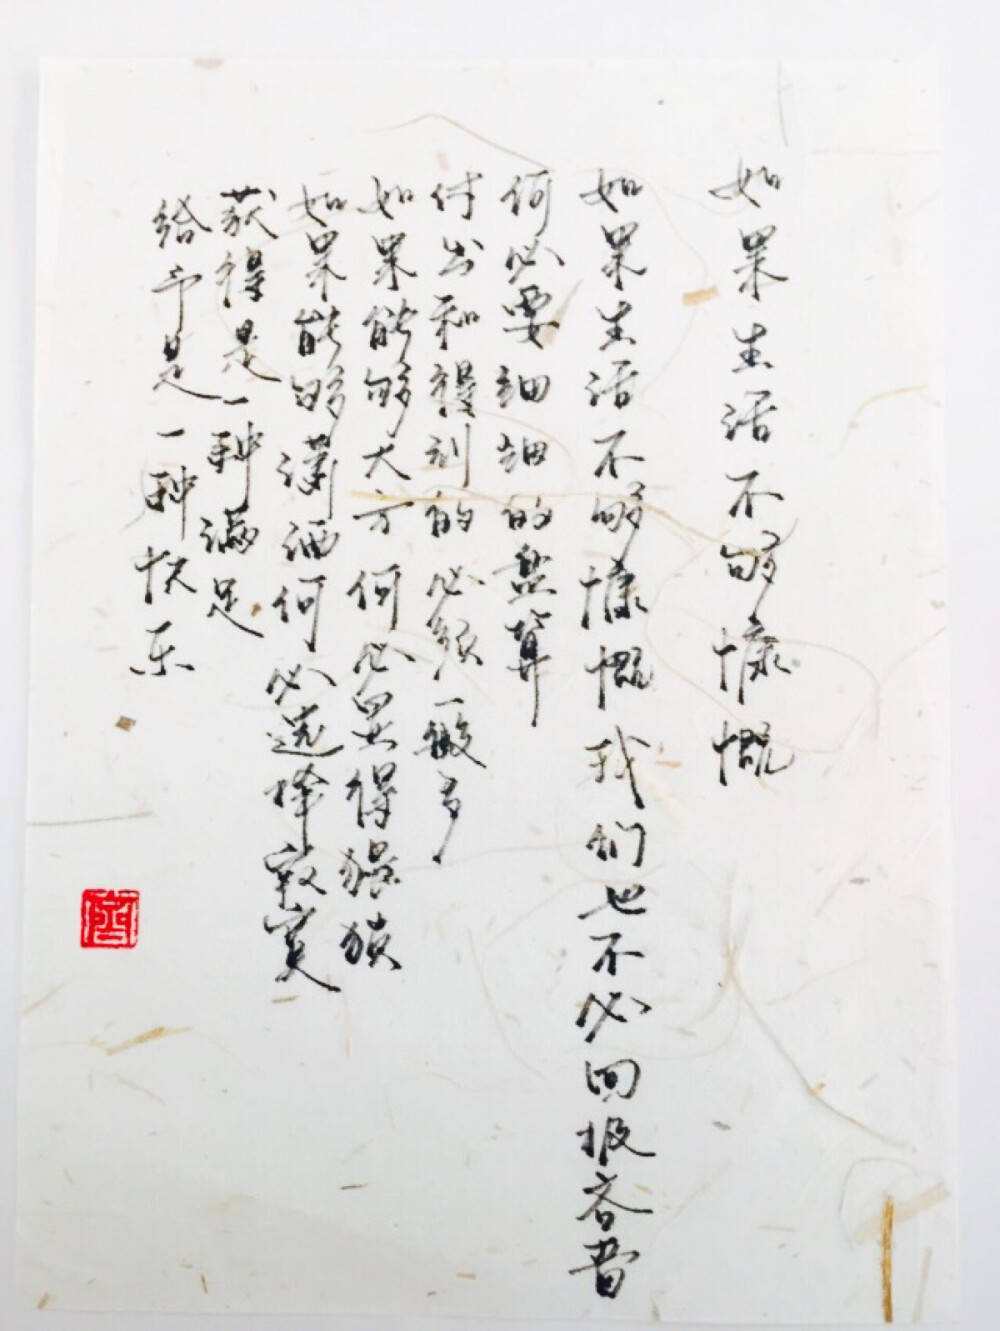 如果生活不够慷慨
如果生活不够慷慨我们也不必回报吝啬
何必要细细的盘算
付出和得到的必须一般多
如果能够大方何必显得猥琐
如果能够潇洒何必选择寂寞
获得是一种满足
给予是一种快乐